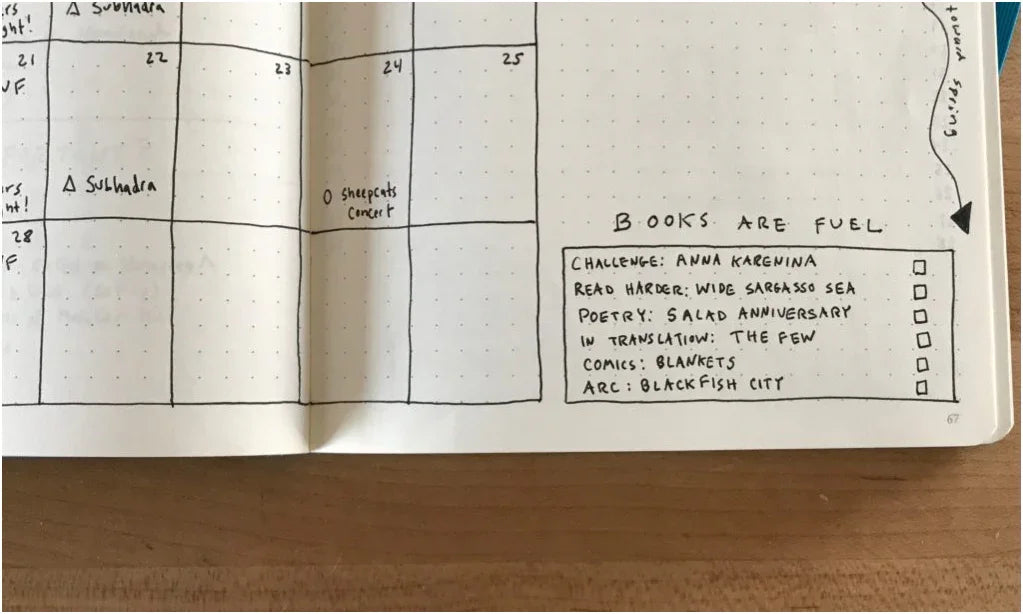 Δ Subhadra
ght!
21
22
23
24
25
F
Δ Subhadra
ht!
O Sheepcats
Concert
28
F
toward spring
BOOKS ARE FUEL
CHALLENGE: ANNA KARENINA
READ HARDER: WIDE SARGASSO SEA
POETRY: SALAD ANNIVERSARY
IN TRANSLATION: THE FEW
COMICS: BLANKETS
ARC: BLACKFISH CITY
67